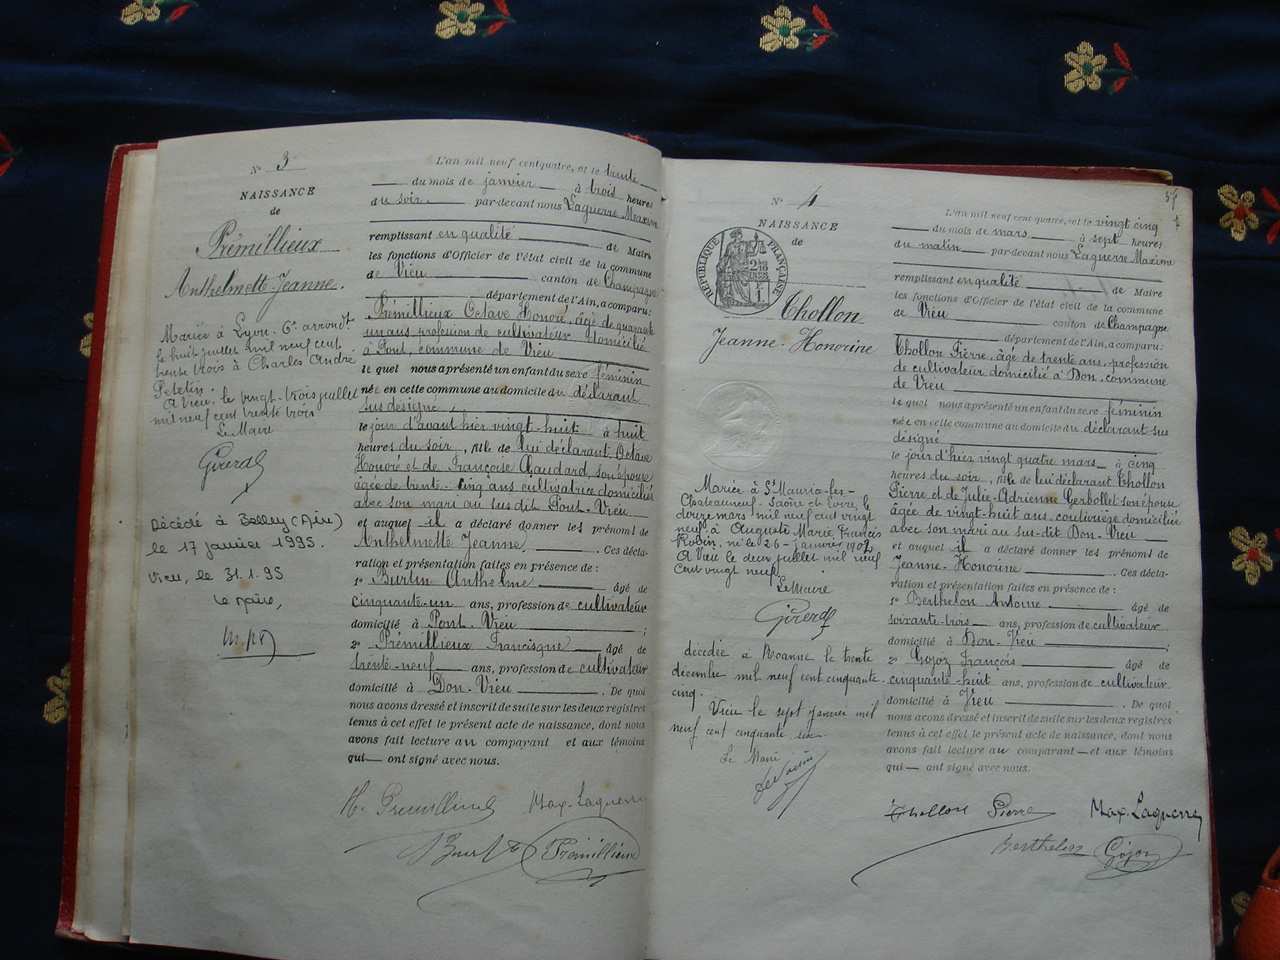 N° 3
NAISSANCE
de
Prémillieux
Anthelmette-Jeanne.
Mariée à Lyon. 6e arrondt
le huit juillet mil neuf cent
trente trois à Charles André
Petetin.
A Vieu, le vingt-trois juillet
mil neuf cent trente trois
Le Maire
Girerd
Décédé à Belley (Ain)
le 17 janvier 1995.
Vieu, le 31.1.95
Le Maire,
L'an mil neuf cent quatre, et le trente
du mois de janvier à trois heures
du soir par-devant nous Laguerre Maxime
remplissant en qualité de Maire
les fonctions d'Officier de l'état civil de la commune
de Vieu canton de Champagne
département de l'Ain, a comparu:
Prémillieux Octave Honoré, âgé de quarante
un ans, profession de cultivateur domicilié
à Pont, commune de Vieu
le quel nous a présenté un enfant du sexe féminin
née en cette commune au domicile du déclarant
sus désigné
le jour d'avant hier vingt-huit à huit
heures du soir, fille de lui déclarant Octave
Honoré et de Françoise Chaudard, son épouse
âgée de trente-cinq ans cultivatrice domiciliée
avec son mari au sus dit Pont-Vieu
et auquel il a déclaré donner les prénoms de
Anthelmette Jeanne. Ces décla-
ration et présentation faites en présence de :
1° Burtin Anthelme âgé de
cinquante-un ans, profession de cultivateur
domicilié à Pont-Vieu ;
2° Prémillieux Francisque âgé de
trente-neuf ans, profession de cultivateur
domicilié à Don-Vieu. De quoi
nous avons dressé et inscrit de suite sur les deux registres
tenus à cet effet le présent acte de naissance, dont nous
avons fait lecture au comparant et aux témoins
qui ont signé avec nous.
H. Premillieux Max-Laguerre
Burtin Prémillieux
N° 4
NAISSANCE
de
RÉPUBLIQUE FRANÇAISE
Chollon
Jeanne-Honorine
Mariée à St Maurice-les-
Chateauneuf-Saône et Loire, le
douze mars mil neuf cent vingt
neuf à Auguste Marie François
Robin, né le 26 janvier 1902
A Vieu le deux juillet mil neuf
cent vingt neuf
Le Maire
Girerd
décédée a Roanne le trente
décembre mil neuf cent cinquante
cinq.
Vieu le sept janvier mil
neuf cent cinquante six
Le Maire
L'an mil neuf cent quatre, et le vingt cinq
du mois de mars à sept heures
du matin par-devant nous Laguerre Maxime
remplissant en qualité de Maire
les fonctions d'Officier de l'état civil de la commune
de Vieu canton de Champagne
département de l'Ain, a comparu:
Chollon Pierre, âgé de trente ans, profession
de cultivateur domicilié à Don, commune
de Vieu
le quel nous a présenté un enfant du sexe féminin
née en cette commune au domicile du déclarant sus
désigné
le jour d'hier vingt quatre mars à cinq
heures du soir, fille de lui déclarant Chollon
Pierre et de Julie-Adrienne Gerbollet son épouse
âgée de vingt-huit ans, couturière domiciliée
avec son mari au sus-dit Don-Vieu
et auquel il a déclaré donner les prénoms de
Jeanne-Honorine. Ces décla-
ration et présentation faites en présence de :
1° Berthelon Antoine âgé de
soixante-trois ans, profession de cultivateur
domicilié à Don-Vieu ;
2° Gojoz François âgé de
cinquante-huit ans, profession de cultivateur
domicilié à Vieu. De quoi
nous avons dressé et inscrit de suite sur les deux registres
tenus à cet effet le présent acte de naissance, dont nous
avons fait lecture au comparant et aux témoins
qui ont signé avec nous.
Chollon Pierre Max-Laguerre
Berthelon Gojoz